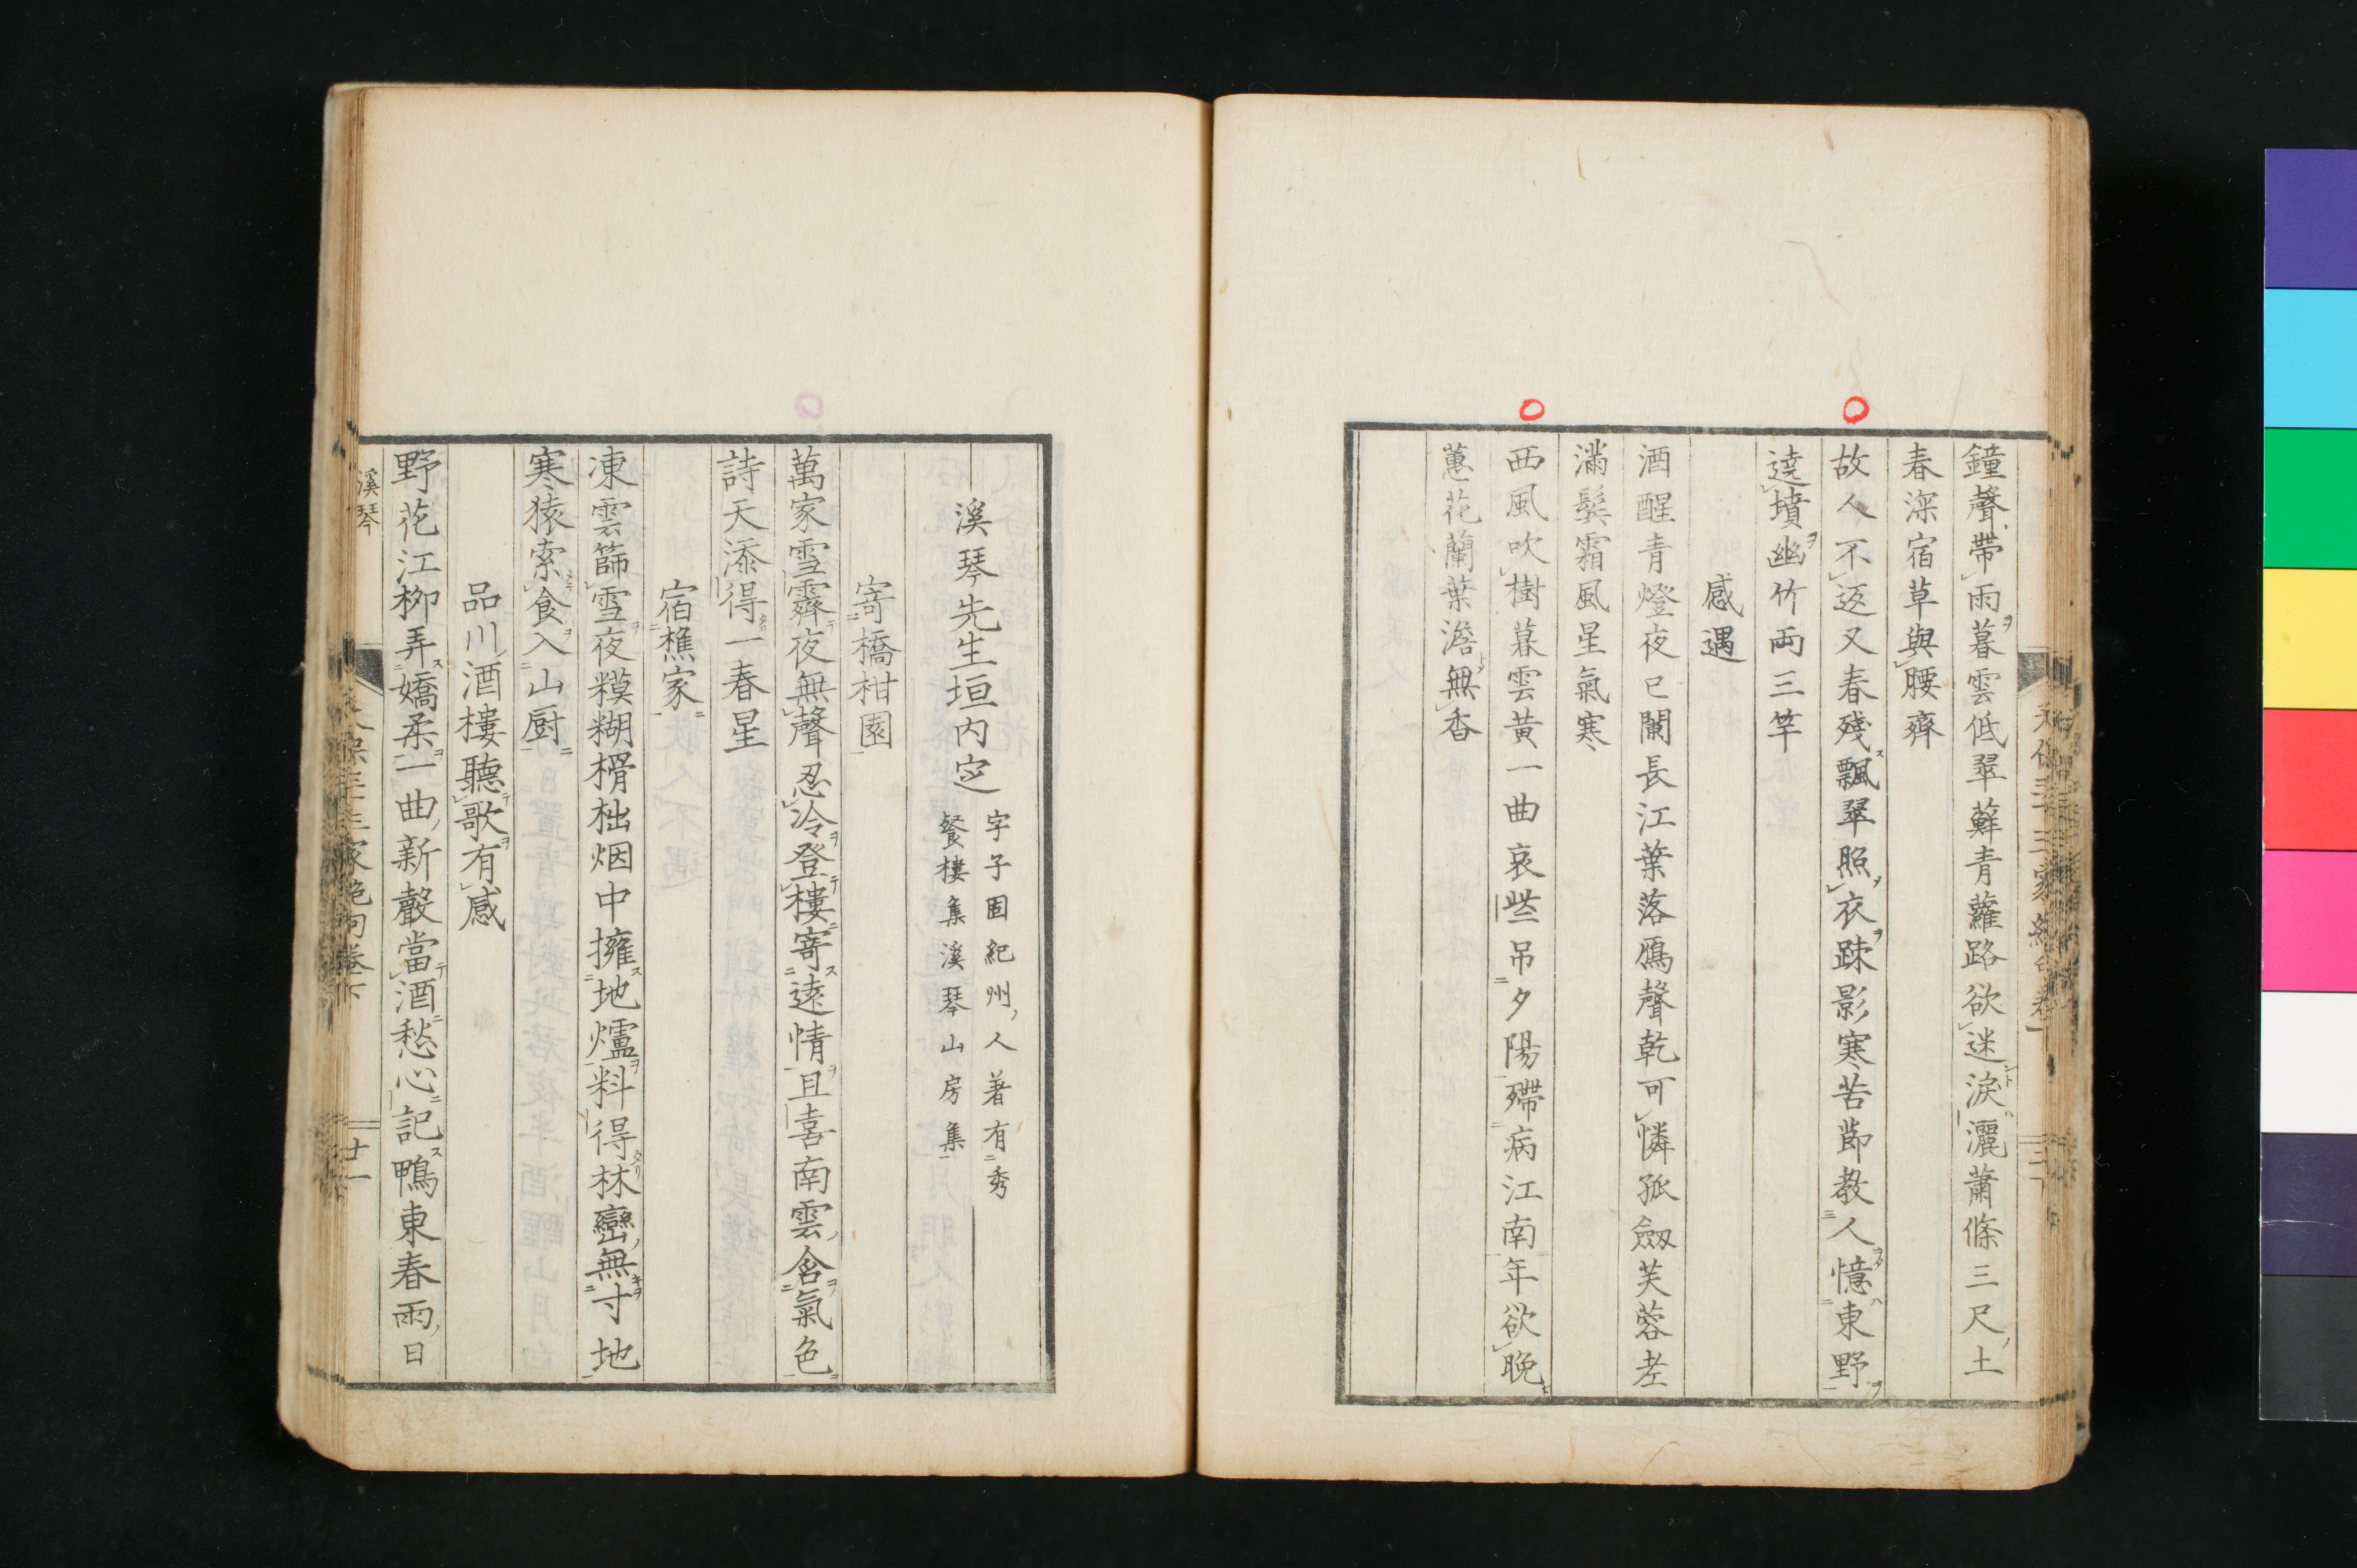 鐘聲帶雨暮雲低翠蘚青蘿路欲迷淚灑蕭條三尺土
春深宿草與腰齊
故人不返又春殘飄翠照衣踈影寒苦節教人憶東野
遶墳幽竹両三竿
感遇
酒醒青燈夜已闌長江葉落鴈聲乾可憐孤劔芙蓉老
滿鬂霜風星氣寒
西風吹樹暮雲黃一曲哀些吊夕陽殢病江南年欲晚
蕙花蘭葉澹無香
溪琴先生垣内定
字子固紀州人著有秀
餐樓集溪琴山房集
寄橋柑園
萬家雪霽夜無聲忍冷登樓寄遠情且喜南雲含氣色
詩天添得一春星
宿樵家
凍雲篩雪夜糢糊榾柮烟中擁地爐料得林巒無寸地
寒猿索食入山厨
品川酒樓聽歌有感
野花江柳弄嬌柔一曲新聲當酒愁心記鴨東春雨日
溪琴
家絶句卷下
廿一